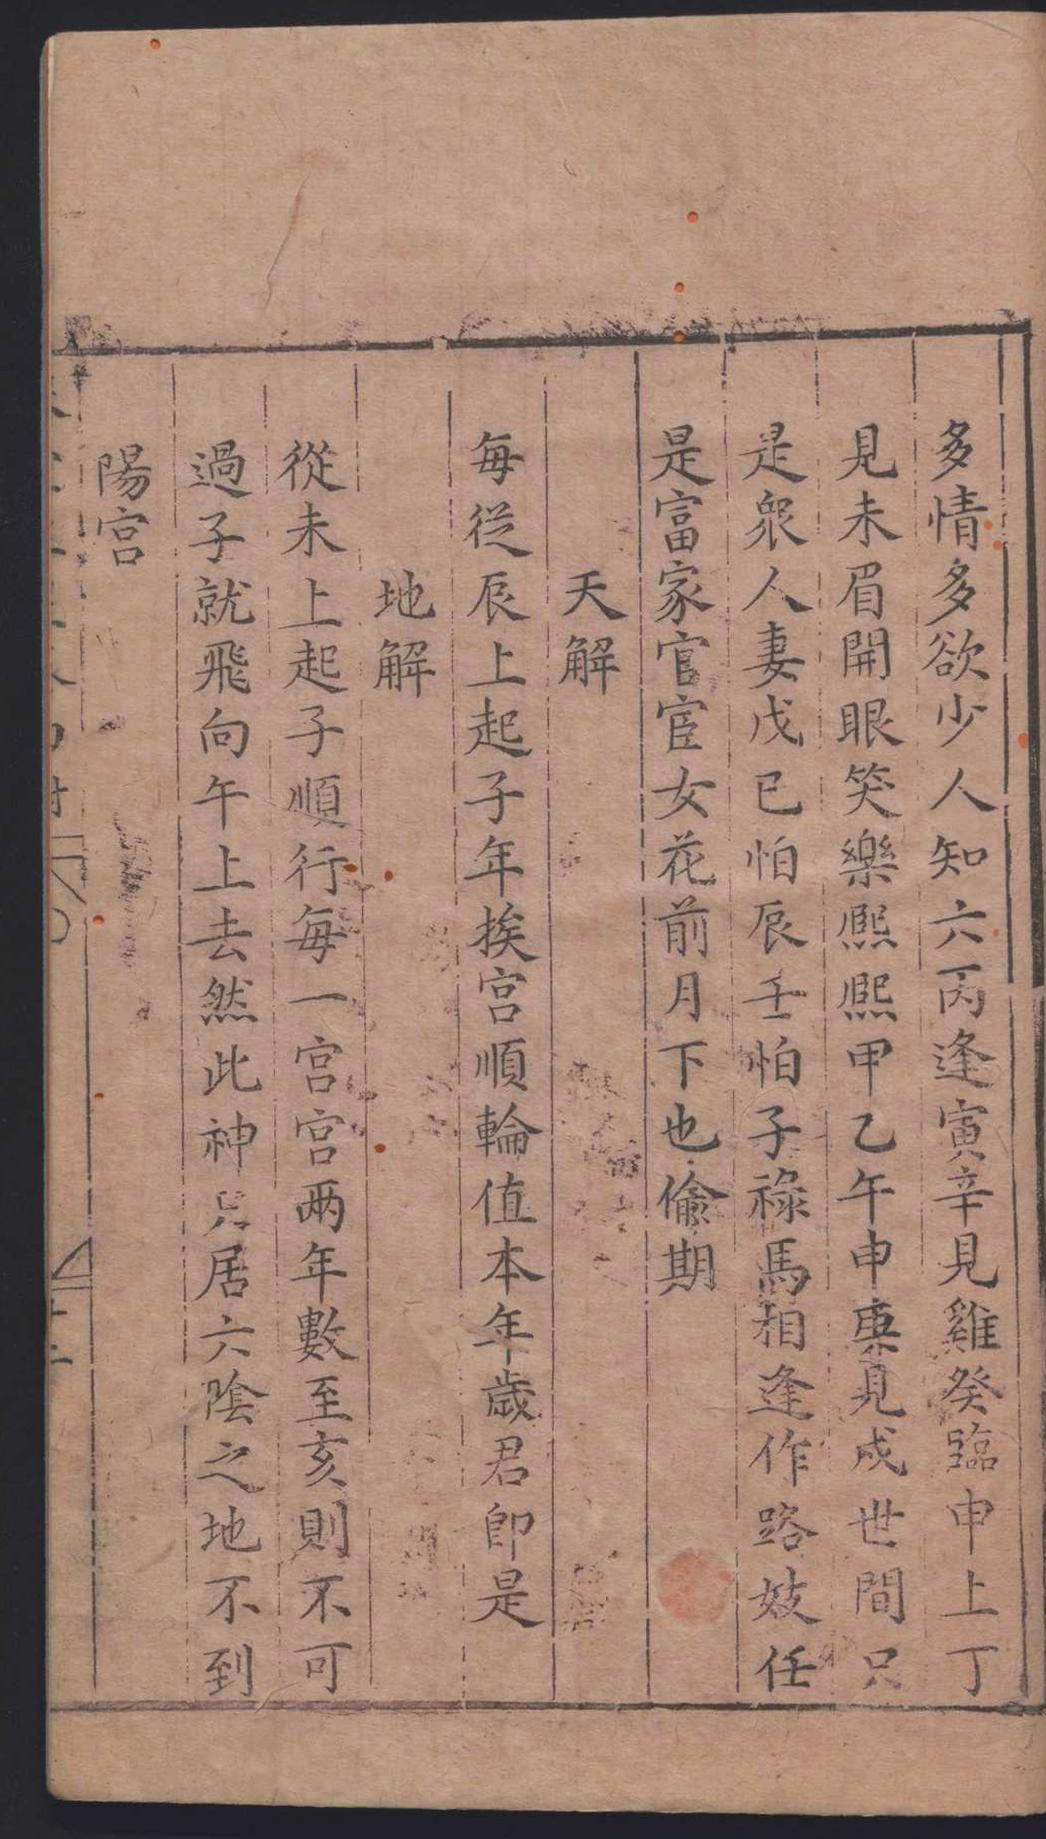 多情多欲少人知六丙逢寅辛見雞癸臨申上丁
見未眉開眼笑樂熈熈甲乙午申庚見戍世間只
是衆人妻戊已怕辰壬怕子祿馬相逢作路妓任
是富家官宦女花前月下也偷期
天解
每從辰上起子年挨宮順輪值本年歲君卽是
地解
從未上起子順行每一宮宮兩年數至亥則不可
過子就飛向午上去然此神只居六陰之地不到
陽宮